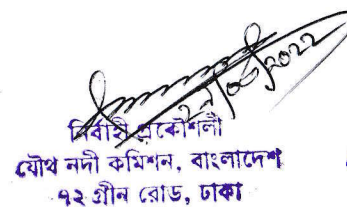 ২৭/০৬/২০২২
নির্বাহী প্রকৌশলী
যৌথ নদী কমিশন, বাংলাদেশ
৭২ গ্রীন রোড, ঢাকা